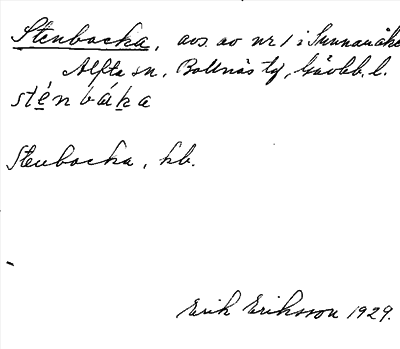 Stenbacka, avs. av nr 1 i Sunnanåke
Alfta sn, Bollnäs tg, Gävleb. l.
sténbáka
Stenbacka, kb.
Erik Eriksson 1929.